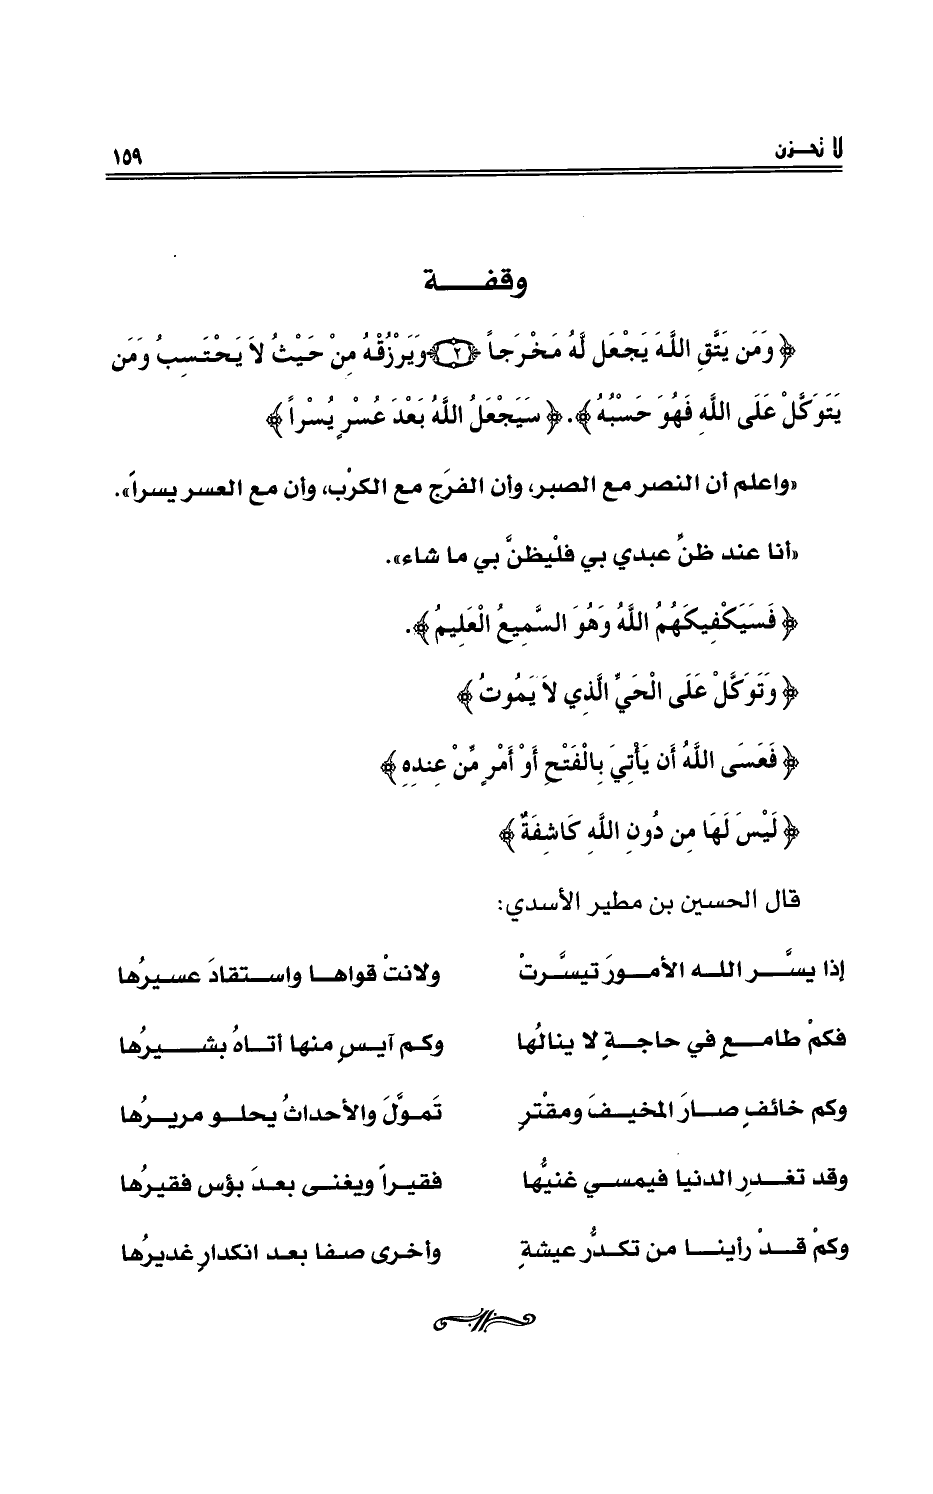 لا تحـزن
١٥٩
وقفـــة
﴿ وَمَن يَتَّقِ اللَّهَ يَجْعَل لَّهُ مَخْرَجاً ﴿٢﴾ وَيَرْزُقْهُ مِنْ حَيْثُ لاَ يَحْتَسِبُ وَمَن
يَتَوَكَّلْ عَلَى اللَّهِ فَهُوَ حَسْبُهُ ﴾. ﴿ سَيَجْعَلُ اللَّهُ بَعْدَ عُسْرٍ يُسْراً ﴾
«واعلم أن النصر مع الصبر، وأن الفرَج مع الكرْب، وأن مع العسر يسراً».
«أنا عند ظنِّ عبدي بي فليْظنَّ بي ما شاء».
﴿ فَسَيَكْفِيكَهُمُ اللَّهُ وَهُوَ السَّمِيعُ الْعَلِيمُ ﴾.
﴿ وَتَوَكَّلْ عَلَى الْحَيِّ الَّذِي لاَ يَمُوتُ ﴾
﴿ فَعَسَى اللَّهُ أَن يَأْتِيَ بِالْفَتْحِ أَوْ أَمْرٍ مِّنْ عِندِهِ ﴾
﴿ لَيْسَ لَهَا مِن دُونِ اللَّهِ كَاشِفَةٌ ﴾
قال الحسين بن مطير الأسدي:
إذا يسَّـــر اللــه الأمــورَ تيسَّــرتْ ولانتْ قواهــا واســتقادَ عسـيرُها
فكمْ طامــعٍ في حاجــةٍ لا ينالُها وكـم آيـسٍ منها أتـاهُ بشـــيرُها
وكم خائفٍ صــارَ المخيــفَ ومقْترٍ تَمـولَّ والأحداثُ يحلــو مريــرُها
وقد تغــدرِ الدنيا فيمســي غنيُّها فقيـراً ويغنــى بعــدَ بؤس فقيرُها
وكمْ قــدْ رأينــا من تكــدُّرِ عيشةٍ وأخرى صفا بعد انكدارِ غديرُها